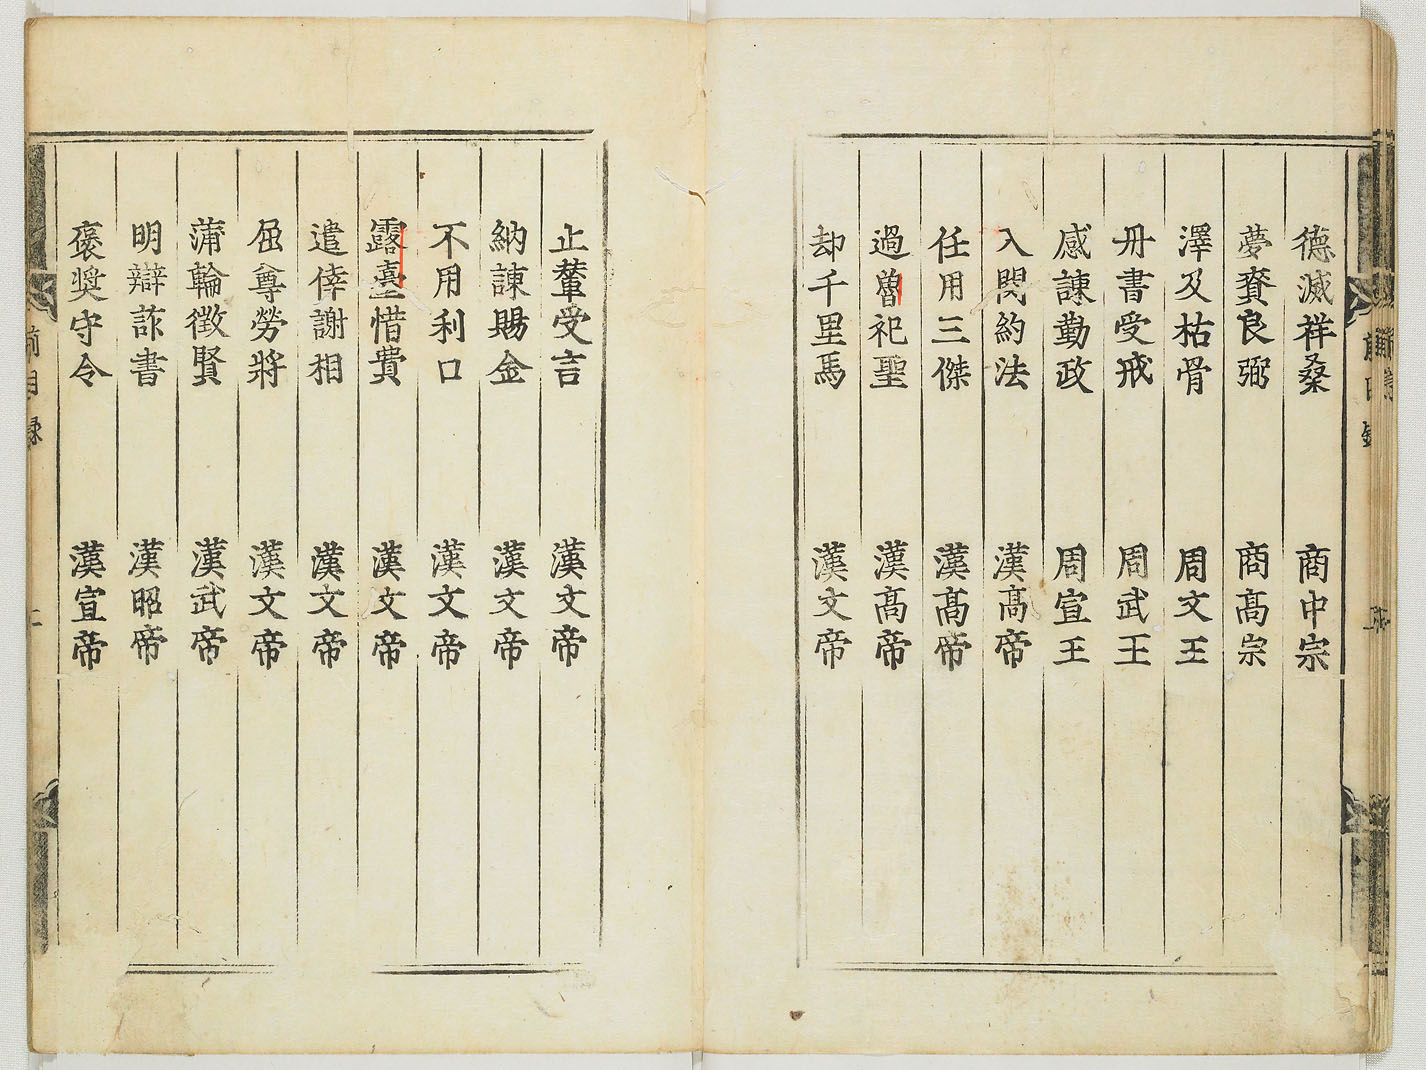 德滅祥桑 商中宗
夢賚良弼 商高宗
澤及枯骨 周文王
丹書受戒 周武王
感諫勤政 周宣王
入関約法 漢高帝
任用三傑 漢高帝
過魯祀聖 漢高帝
却千里馬 漢文帝
止輦受言 漢文帝
納諫賜金 漢文帝
不用利口 漢文帝
露臺惜費 漢文帝
遣倖謝相 漢文帝
屈尊勞將 漢文帝
蒲輪徵賢 漢武帝
明辯詐書 漢昭帝
褒奨守令 漢宣帝
前目録